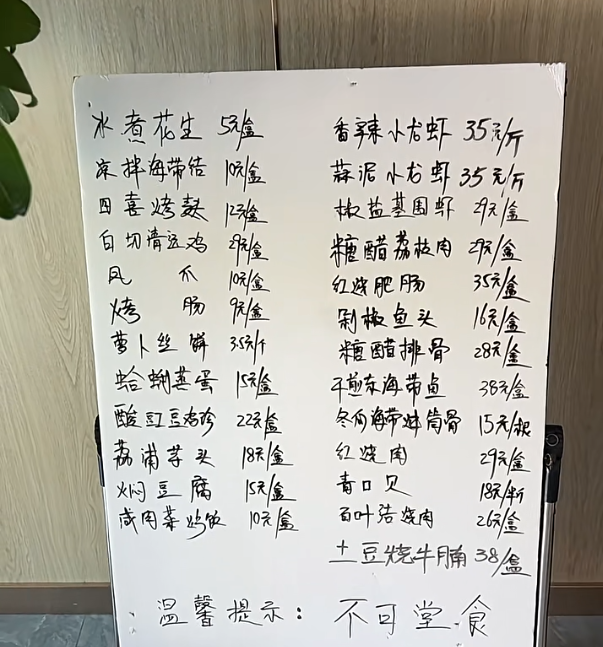 水煮花生 5元/盒
凉拌海带结 10元/盒
四喜烤麸 12元/盒
白切清远鸡 29元/盒
凤 爪 10元/盒
烤 肠 9元/盒
萝卜丝饼 3.5元/个
蛤蜊蒸蛋 15元/盒
酸豇豆鸡胗 22元/盒
荔浦芋头 18元/盒
焖豆腐 15元/盒
咸肉菜炒饭 10元/盒
香辣小龙虾 35元/斤
蒜泥小龙虾 35元/斤
椒盐基围虾 29元/盒
糖醋荔枝肉 29元/盒
红烧肥肠 35元/盒
剁椒鱼头 16元/盒
糖醋排骨 28元/盒
干煎东海带鱼 38元/盒
冬瓜海带炖筒骨 15元/根
红烧肉 29元/盒
青口贝 18元/半斤
百叶结烧肉 26元/盒
土豆烧牛腩 38/盒
温馨提示：不可堂食